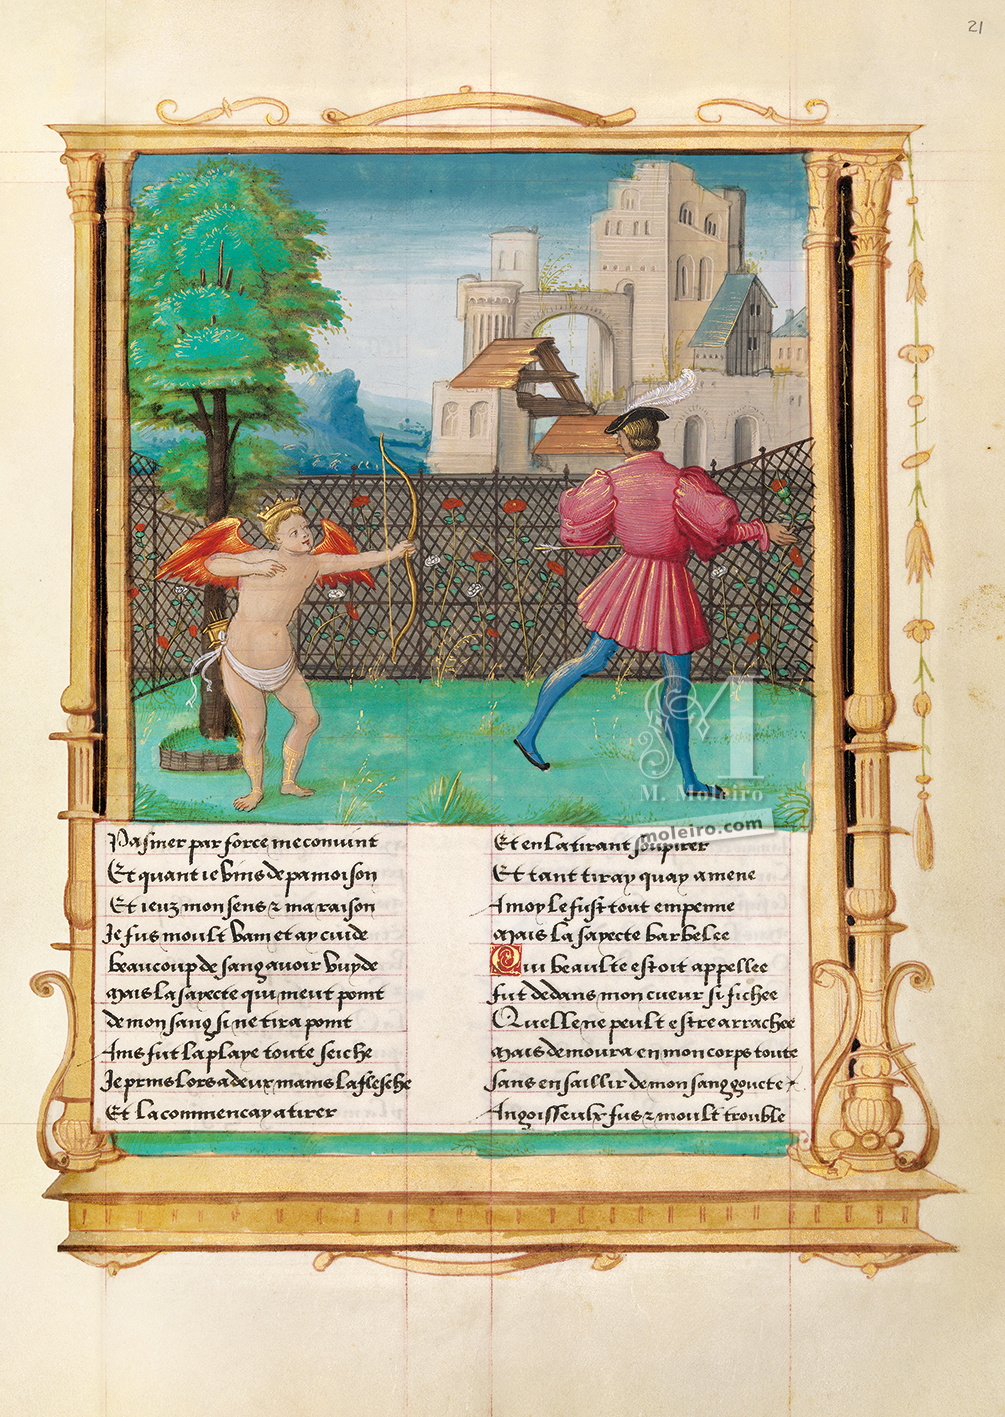 21
Pasmer par force me convint
Et quant ie vins de pamoison
Et ieuz mon sens & ma raison
Je fus moult vain et ay cuide
beaucoup de sang avoir vuyde
Mais la sayecte qui meut point
de mon sang si ne tira point
Ains fut la playe toute seiche
Je prins lors a deux mains la flesche
Et la commencay a tirer
Et en la tirant soupirer
Et tant tiray quay amene
A moy le fust tout empenne
Mais la sayecte barbelee
Qui beaulte estoit appellee
fut dedans mon cueur si fichee
Quelle ne peult estre arrachee
Mais demoura en mon corps toute
sans en saillir de mon sang goucte
Angoisseulx fus & moult trouble
M
M. Moleiro
moleiro.com